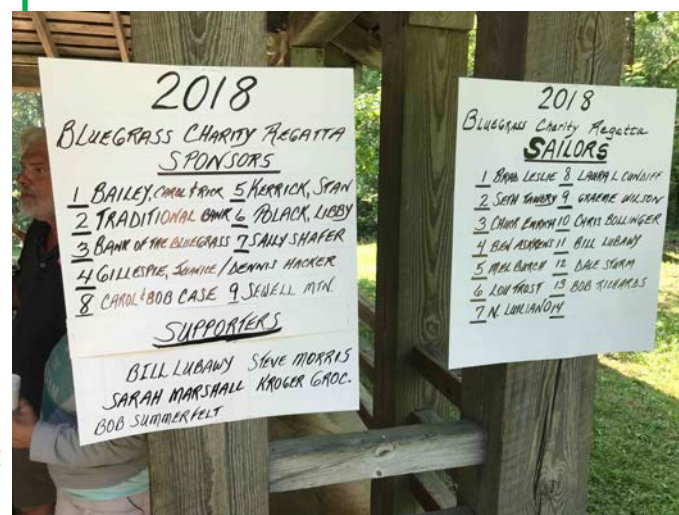 2018
BLUEGRASS CHARITY REGATTA
SPONSORS
1 BAILEY, CAROL & RICK 5 KERRICK, STAN
2 TRADITIONAL BANK 6 POLACK, LIBBY
3 BANK OF THE BLUEGRASS 7 SALLY SHAFER
4 GILLESPIE, JUANICE / DENNIS HACKER
8 CAROL & BOB CASE 9 SEWELL MTN.
SUPPORTERS
BILL LUBAWY STEVE MORRIS
SARAH MARSHALL KROGER GROC.
BOB SUMMERFELT
2018
BLUEGRASS Charity Regatta
SAILORS
1 BRAD LESLIE 8 LAURA L CUNDIFF
2 SETH TAWBRY 9 GRAEME WILSON
3 CHUCK EMRICH 10 CHRIS BOLLINGER
4 BEN ASKRENS 11 BILL LUBAWY
5 MEL BURCH 12 DALE STURM
6 LOU TROST 13 BOB RICHARDS
7 N. 14